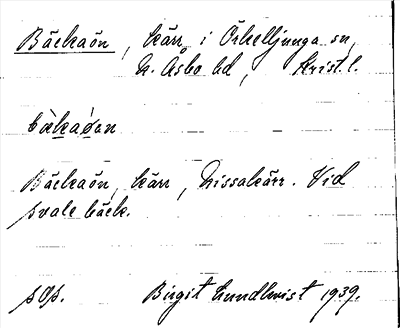 Bäckaön, kärr i Örkelljunga sn,
N. Åsbo hd, Krist. l.
bàkaǿan
Bäckaön, kärr, Nissakärr. Vid
svale bäck.
sOp. Birgit Lundkvist 1939.